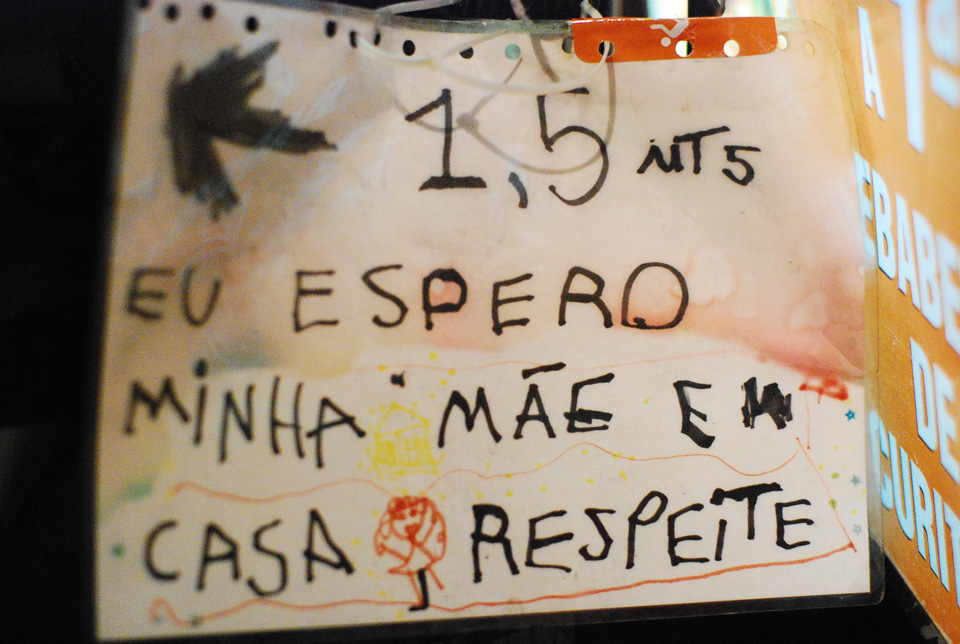 1,5 MTS
EU ESPERO
MINHA MÃE EM
CASA RESPEITE
A 1ª
DE